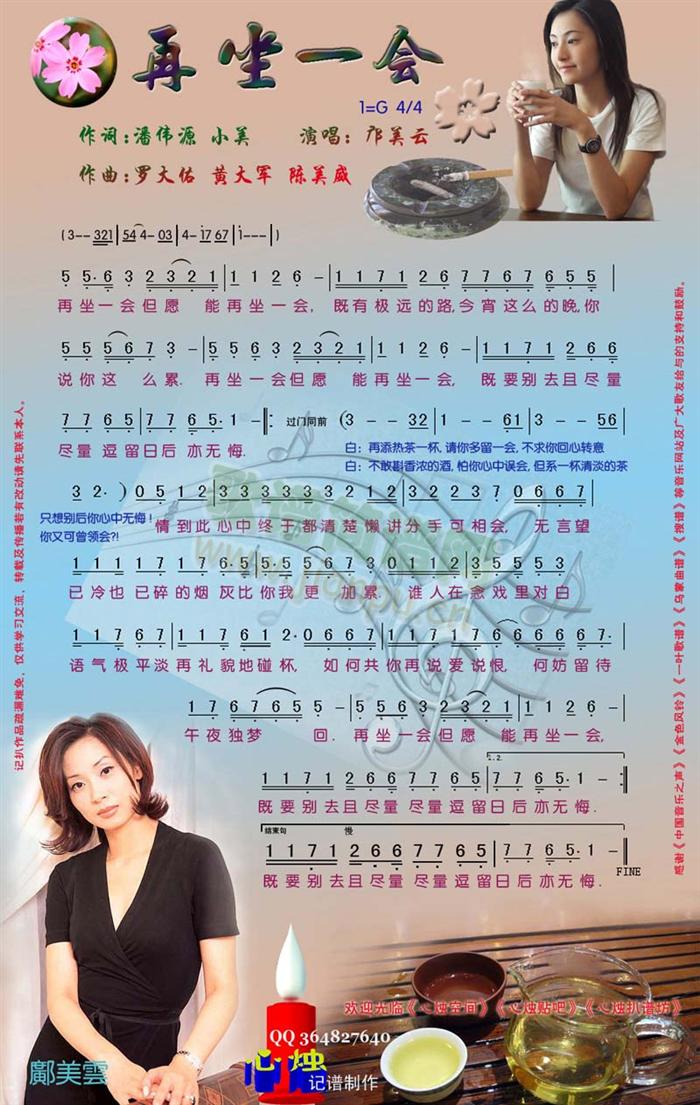 再坐一会
1=G 4/4
作词:潘伟源 小美 演唱:邝美云
作曲:罗大佑 黄大军 陈美威
(3-- 321|54 4-03|4-17 67|1---|)
5 5·6 3 2 3 2 1|1 1 2 6 -|1 1 7 1 2 6 7 7 6 7 6 5 5|
再坐一会但愿 能再坐一会, 既有极远的路,今宵这么的晚,你
5 5 5 5 6 7 3 -|5 5 6 3 2 3 2 1|1 1 2 6 -|1 1 7 1 2 6 6
说你这 么累. 再坐一会但愿 能再坐一会, 既要别去且尽量
7 7 6 5|1 7 7 6 5·1 -:|过门同前 (3 - - 3 2|1 - - 6 1|3 - - 5 6|
尽量 逗留日后 亦无悔.
白:再添热茶一杯,请你多留一会,不求你回心转意
白:不敢斟香浓的酒,怕你心中误会,但系一杯清淡的茶
3 2·)0 5 1 2|3 3 3 3 3 2 1 2|3 2 2 3 7 0 6 6 7|
只想别后你心中无悔!
你又可曾领会?!
情到此心中终于都清楚懒讲分手可相会, 无言望
1 1 1 1 1 7 6 7|1 5 5 3 5 6 7 3 0 1|1 1 2 3 5 2 1 2|
已冷也已碎的烟灰比你我更 加累. 谁人在念戏里对白
1 1 7 6 7 1 7 6 1 2·|2·0 6 6 7|1 1 7 6 7 6 6 6 6 6 7·|
语气极平淡再礼貌地碰杯, 如何共你再说爱说恨, 何妨留待
1 7 6 7 6 5 5 -|5 5 6 3 2 3 2 1|1 1 2 6 -|
午夜独梦 回. 再坐一会但愿 能再坐一会,
1. 2.
1 1 7 1 2 6 6 7 7 6 5|1 7 7 6 5·1 -:|
既要别去且尽量 尽量逗留日后亦无悔.
结束句 慢
1 1 7 1 2 6 6 7 7 6 5|1 7 7 6 5·1 -‖
FINE
既要别去且尽量 尽量逗留日后亦无悔.
记扒作品疏漏难免,仅供学习交流,转载及传播若有改动请先联系本人。
感谢《中国音乐之声》《金色风铃》《一叶歌谱》《乌家曲谱》《搜谱》等音乐网站及广大歌友给与的支持和鼓励。
欢迎光临《心烛空间》《心烛贴吧》《心烛扒谱坊》
QQ 364827640
心烛
记谱制作
鄺美雲